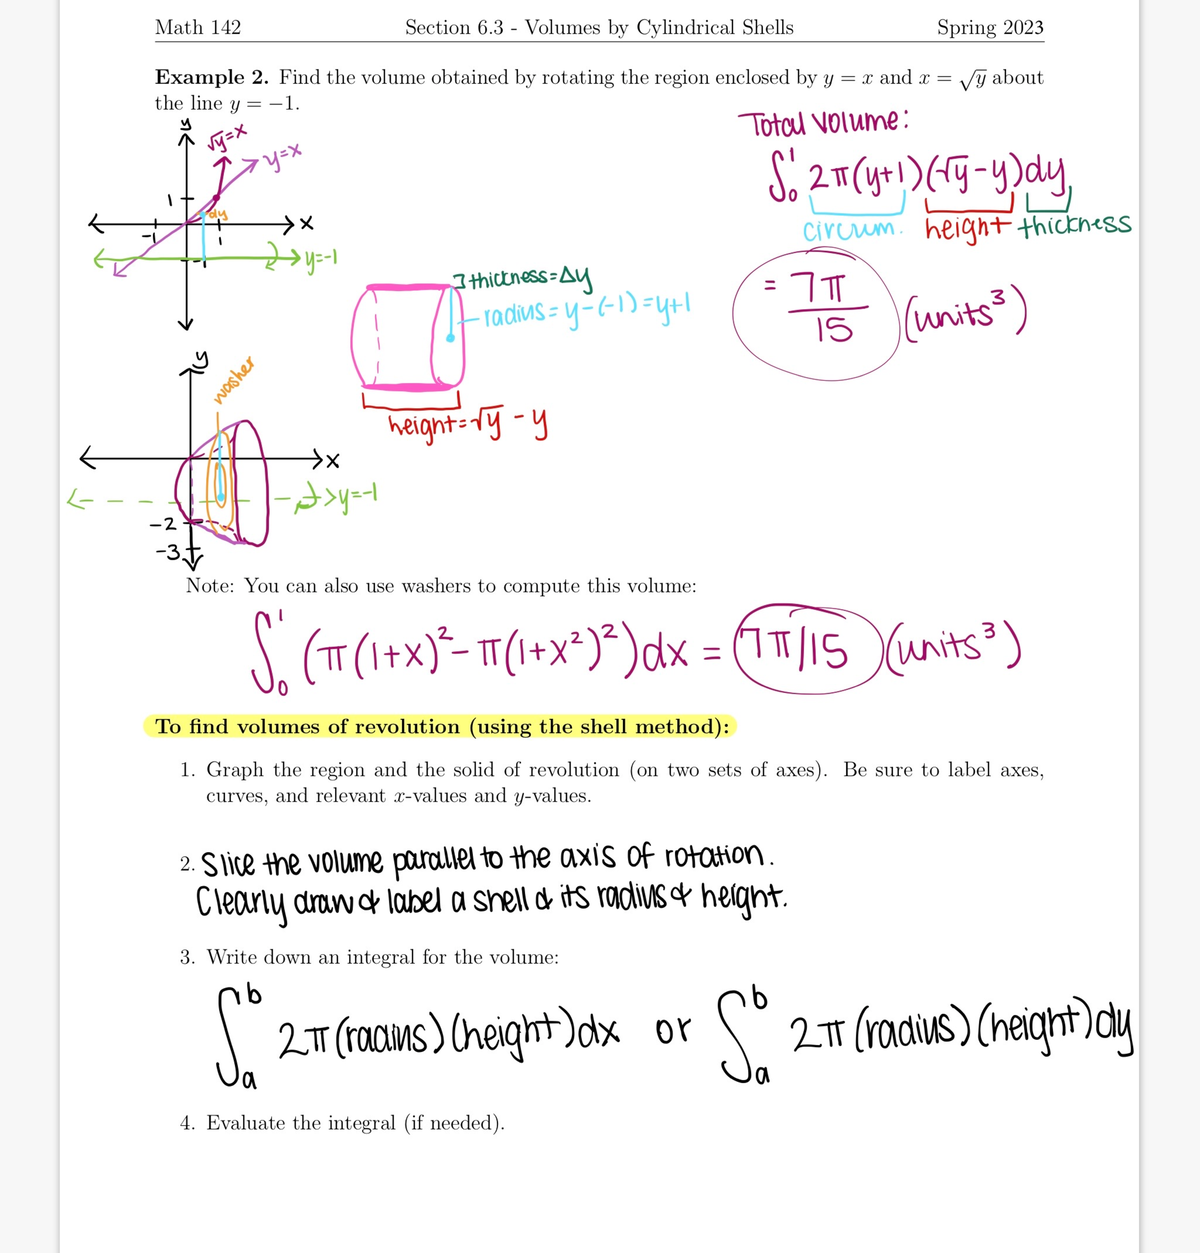 Math 142 Section 6.3 - Volumes by Cylindrical Shells Spring 2023
Example 2. Find the volume obtained by rotating the region enclosed by y = x and x = √y about
the line y = −1.
y
√y=x
y=x
1
dy
x
-1
1
-1
y=-1
Total Volume:
∫₀¹ 2π(y+1)(√y-y)dy
circum. height thickness
= 7π/15 (units³)
thickness=Δy
radius=y-(-1)=y+1
height=√y-y
y
washer
x
y=-1
-2
-3
Note: You can also use washers to compute this volume:
∫₀¹ (π(1+x)²-π(1+x²)²)dx = 7π/15 (units³)
To find volumes of revolution (using the shell method):
1. Graph the region and the solid of revolution (on two sets of axes). Be sure to label axes,
curves, and relevant x-values and y-values.
2. Slice the volume parallel to the axis of rotation.
Clearly draw & label a shell & its radius & height.
3. Write down an integral for the volume:
∫ₐᵇ 2π(radius)(height)dx or ∫ₐᵇ 2π(radius)(height)dy
4. Evaluate the integral (if needed).